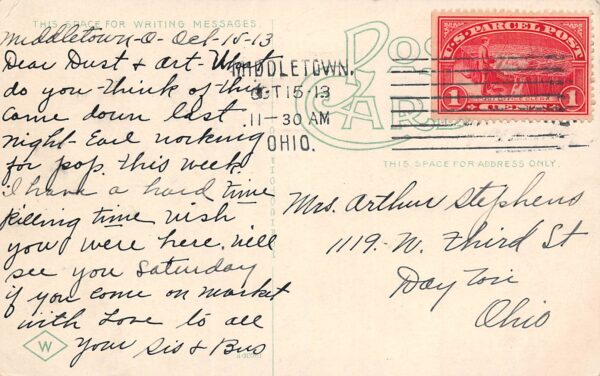 THIS SPACE FOR WRITING MESSAGES.
Middletown-O- Oct-15-13
Dear Dust & Art- What
do you think of this
Came down last
night- Earl working
for pop. this week
i have a hard time
killing time wish
you were here. will
see you Saturday
if you come on market
with Love to all
Your Sis & Bus
W
POST
CARD
MIDDLETOWN,
OCT 15-13
11-30 AM
OHIO.
U.S. PARCEL POST
POST OFFICE CLERK
1 1
THIS SPACE FOR ADDRESS ONLY.
Mrs. Arthur Stephens
1119- W. Third St
Dayton
Ohio